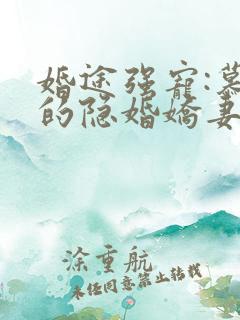 婚途强宠:慕
的隐婚娇妻
涂重航
未经同意禁止转载